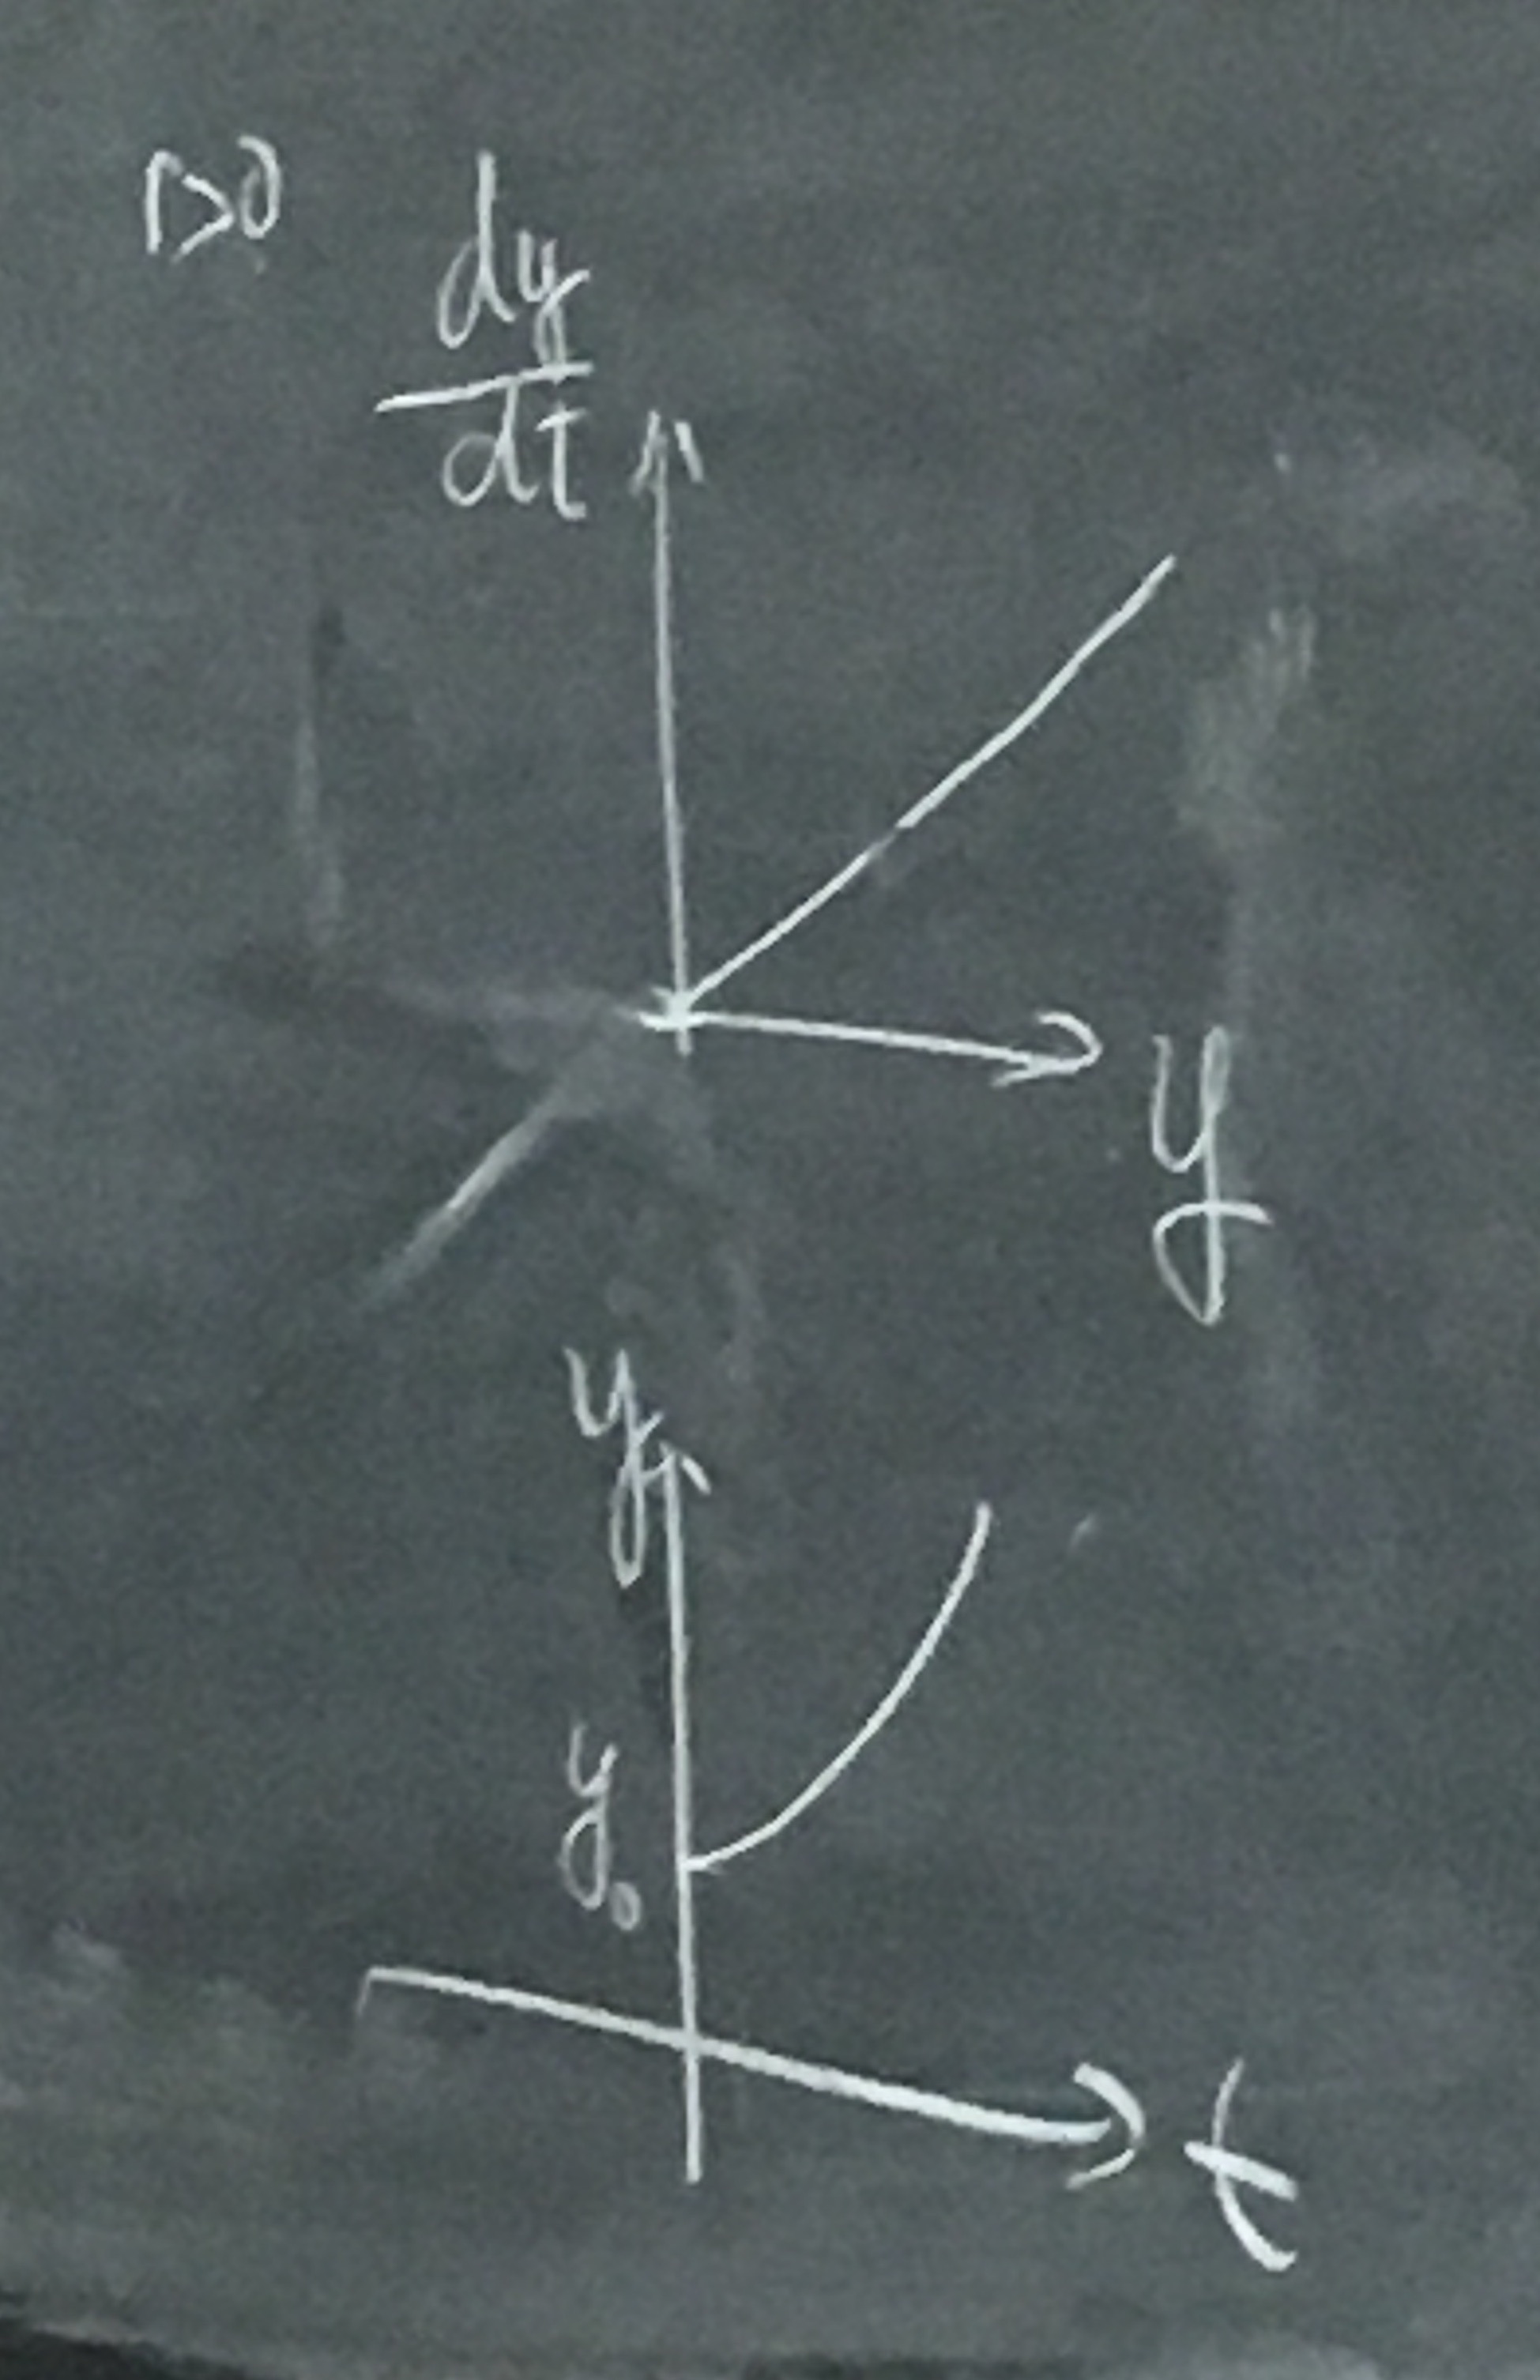 r>0
dy
dt
y
y
y₀
t